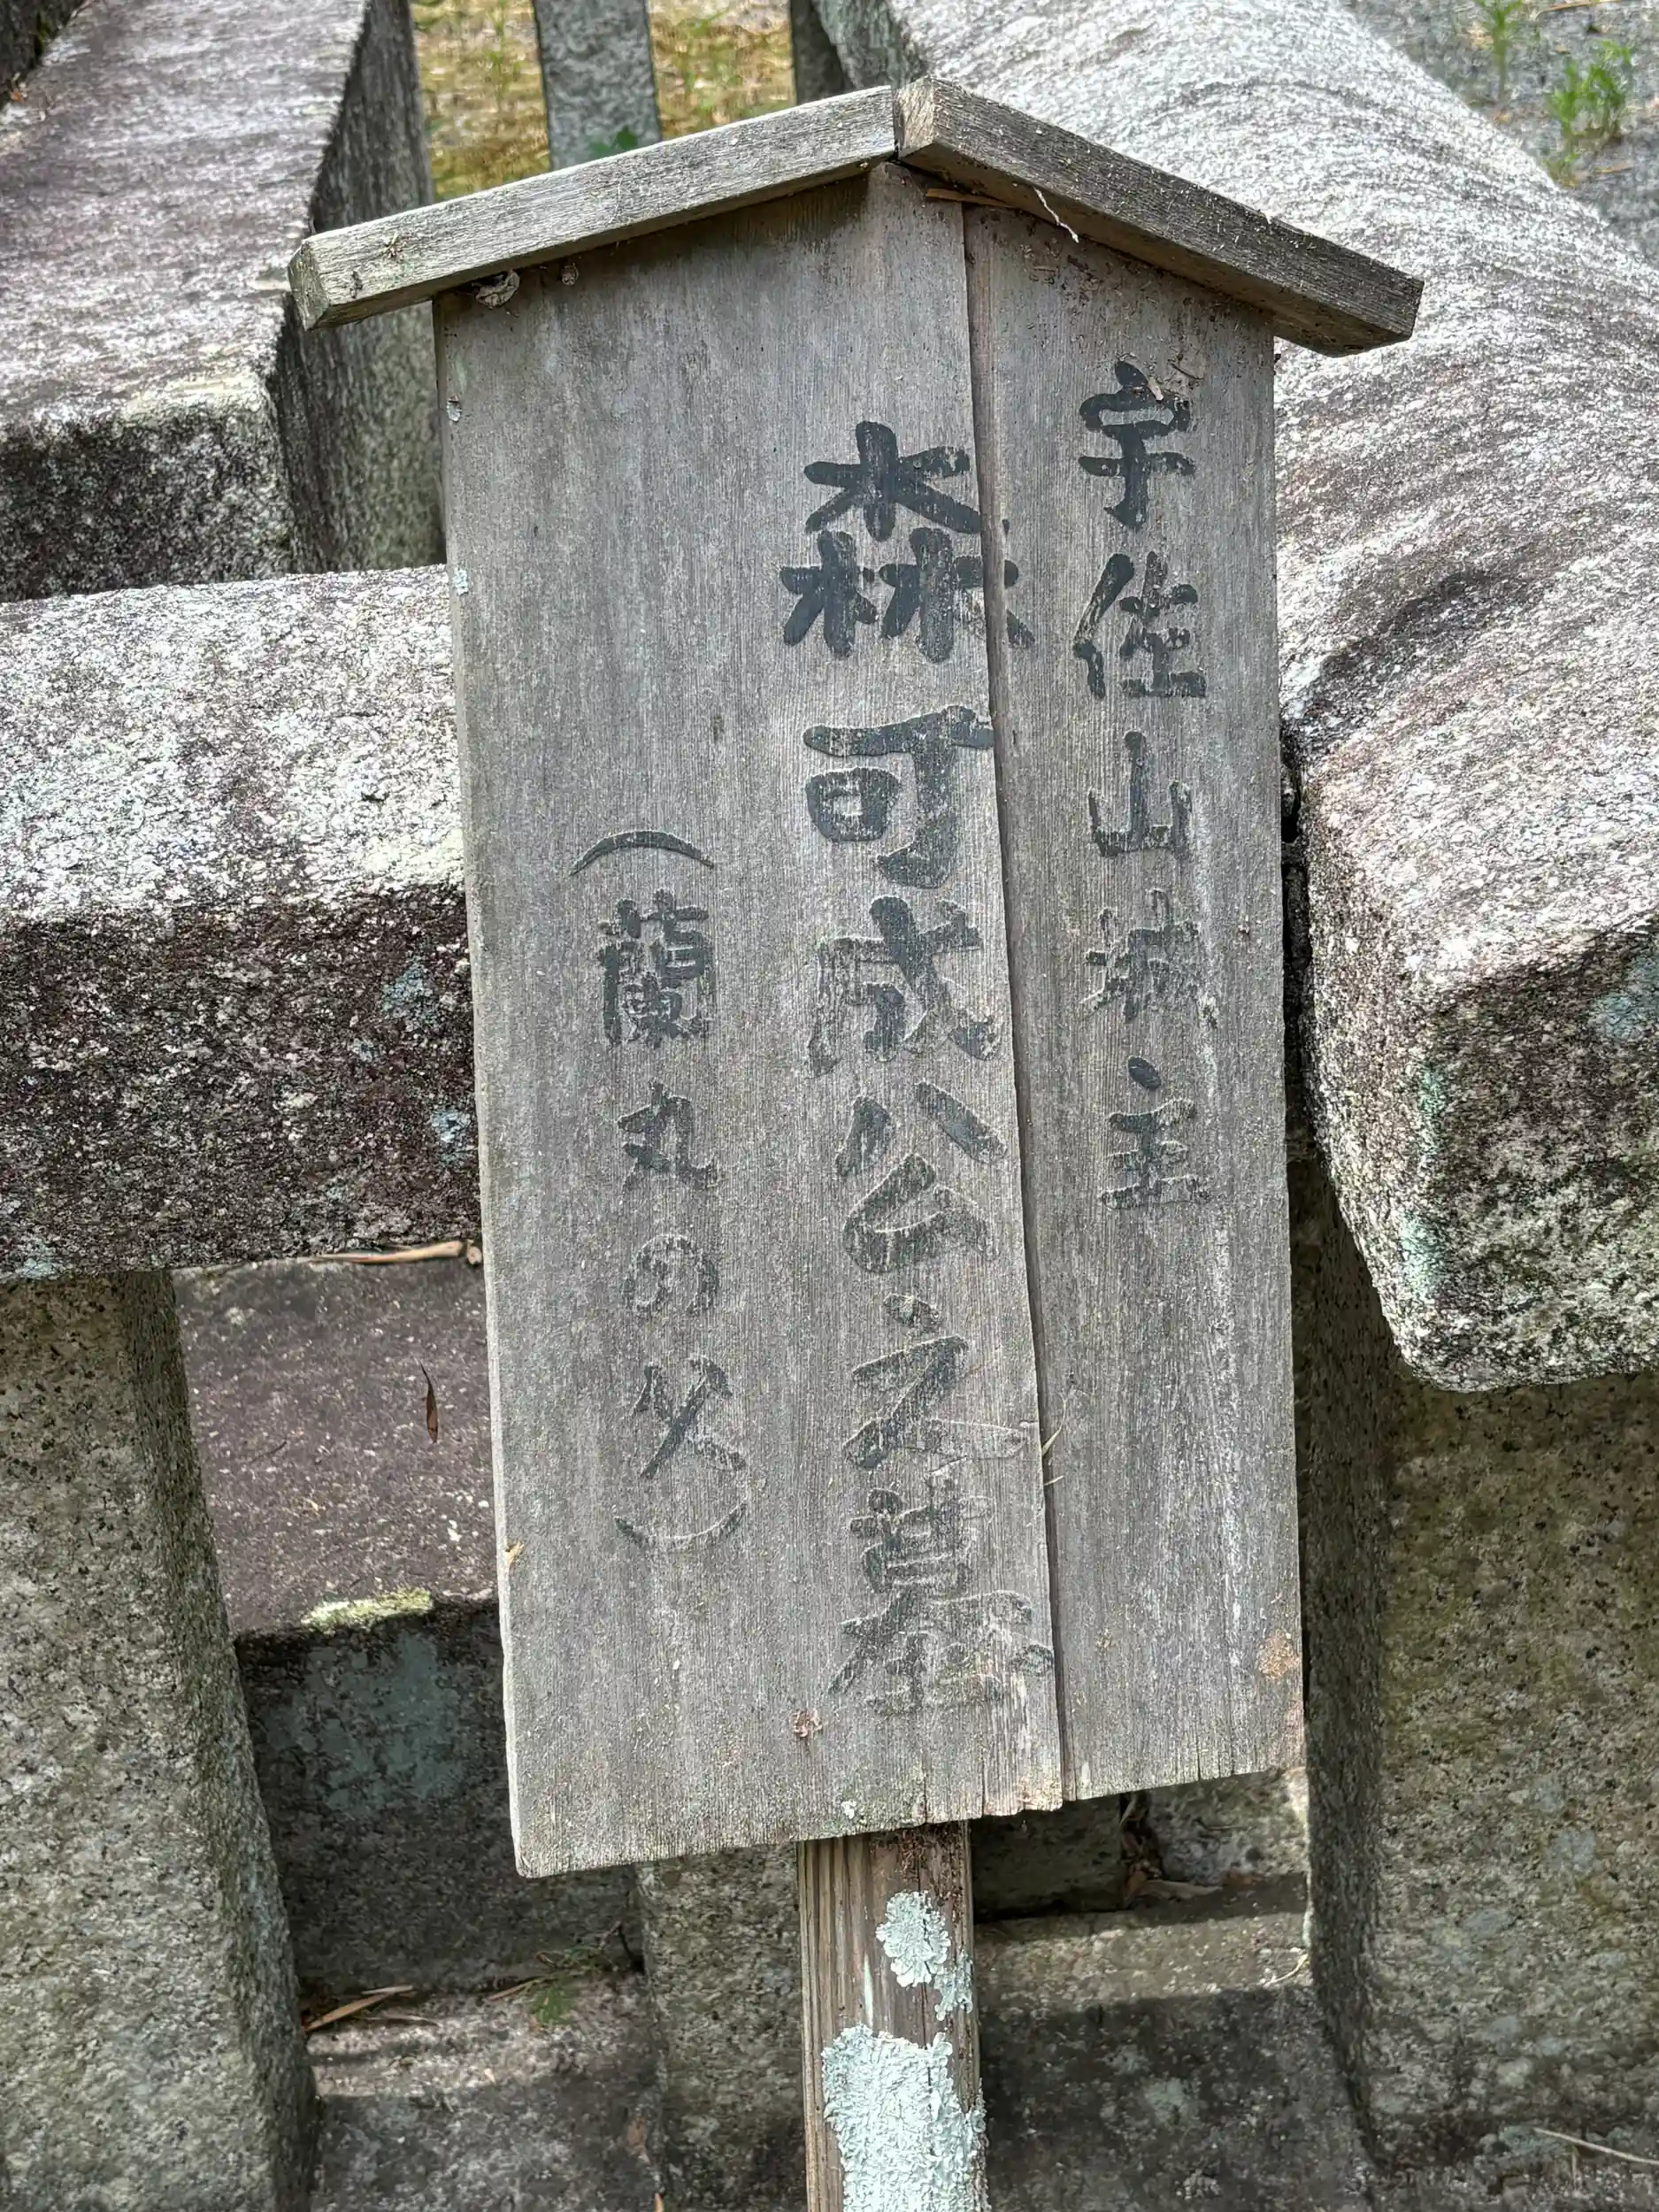 宇佐山城主
森可成公之墓
（蘭丸の父）